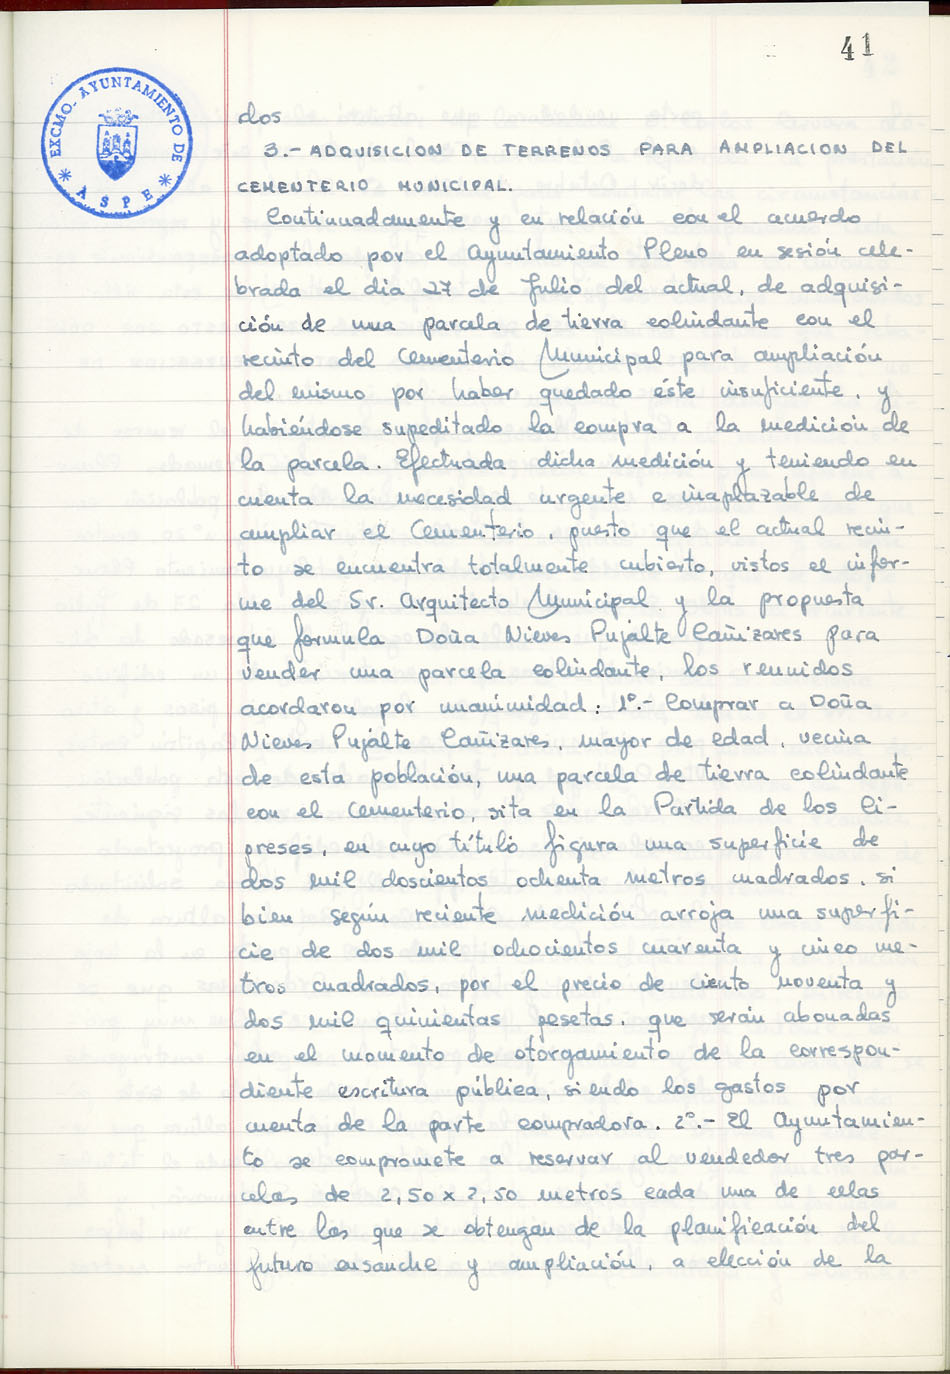 41
EXCMO. AYUNTAMIENTO DE
* ASPE *
dos
3.- ADQUISICION DE TERRENOS PARA AMPLIACION DEL
CEMENTERIO MUNICIPAL.
Continuadamente y en relación con el acuerdo
adoptado por el Ayuntamiento Pleno en sesión cele-
brada el dia 27 de Julio del actual, de adquisi-
ción de una parcela de tierra colindante con el
recinto del Cementerio Municipal para ampliación
del mismo por haber quedado éste insuficiente, y
habiéndose supeditado la compra a la medición de
la parcela. Efectuada dicha medición y teniendo en
cuenta la necesidad urgente e inaplazable de
ampliar el Cementerio, puesto que el actual recin-
to se encuentra totalmente cubierto, vistos el infor-
me del Sr. Arquitecto Municipal y la propuesta
que formula Doña Nieves Pujalte Cañizares para
vender una parcela colindante, los reunidos
acordaron por unanimidad: 1º.- Comprar a Doña
Nieves Pujalte Cañizares, mayor de edad, vecina
de esta población, una parcela de tierra colindante
con el Cementerio, sita en la Partida de los Ci-
preses, en cuyo título figura una superficie de
dos mil doscientos ochenta metros cuadrados, si
bien según reciente medición arroja una superfi-
cie de dos mil ochocientos cuarenta y cinco me-
tros cuadrados, por el precio de ciento noventa y
dos mil quinientas pesetas, que serán abonadas
en el momento de otorgamiento de la correspon-
diente escritura pública, siendo los gastos por
cuenta de la parte compradora. 2º.- El Ayuntamien-
to se compromete a reservar al vendedor tres par-
celas de 2,50 x 2,50 metros cada una de ellas
entre las que se obtengan de la planificación del
futuro ensanche y ampliación, a elección de la